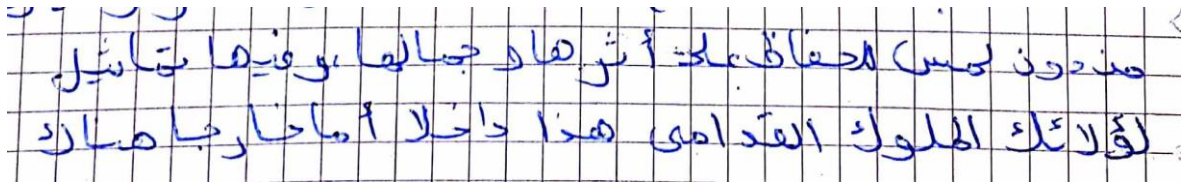 من دون لمس للحفاظ على أثرها و جمالها، و فيها تماثيل
لؤلائك الملوك القدامى هذا داخلا أما خارجا هناك